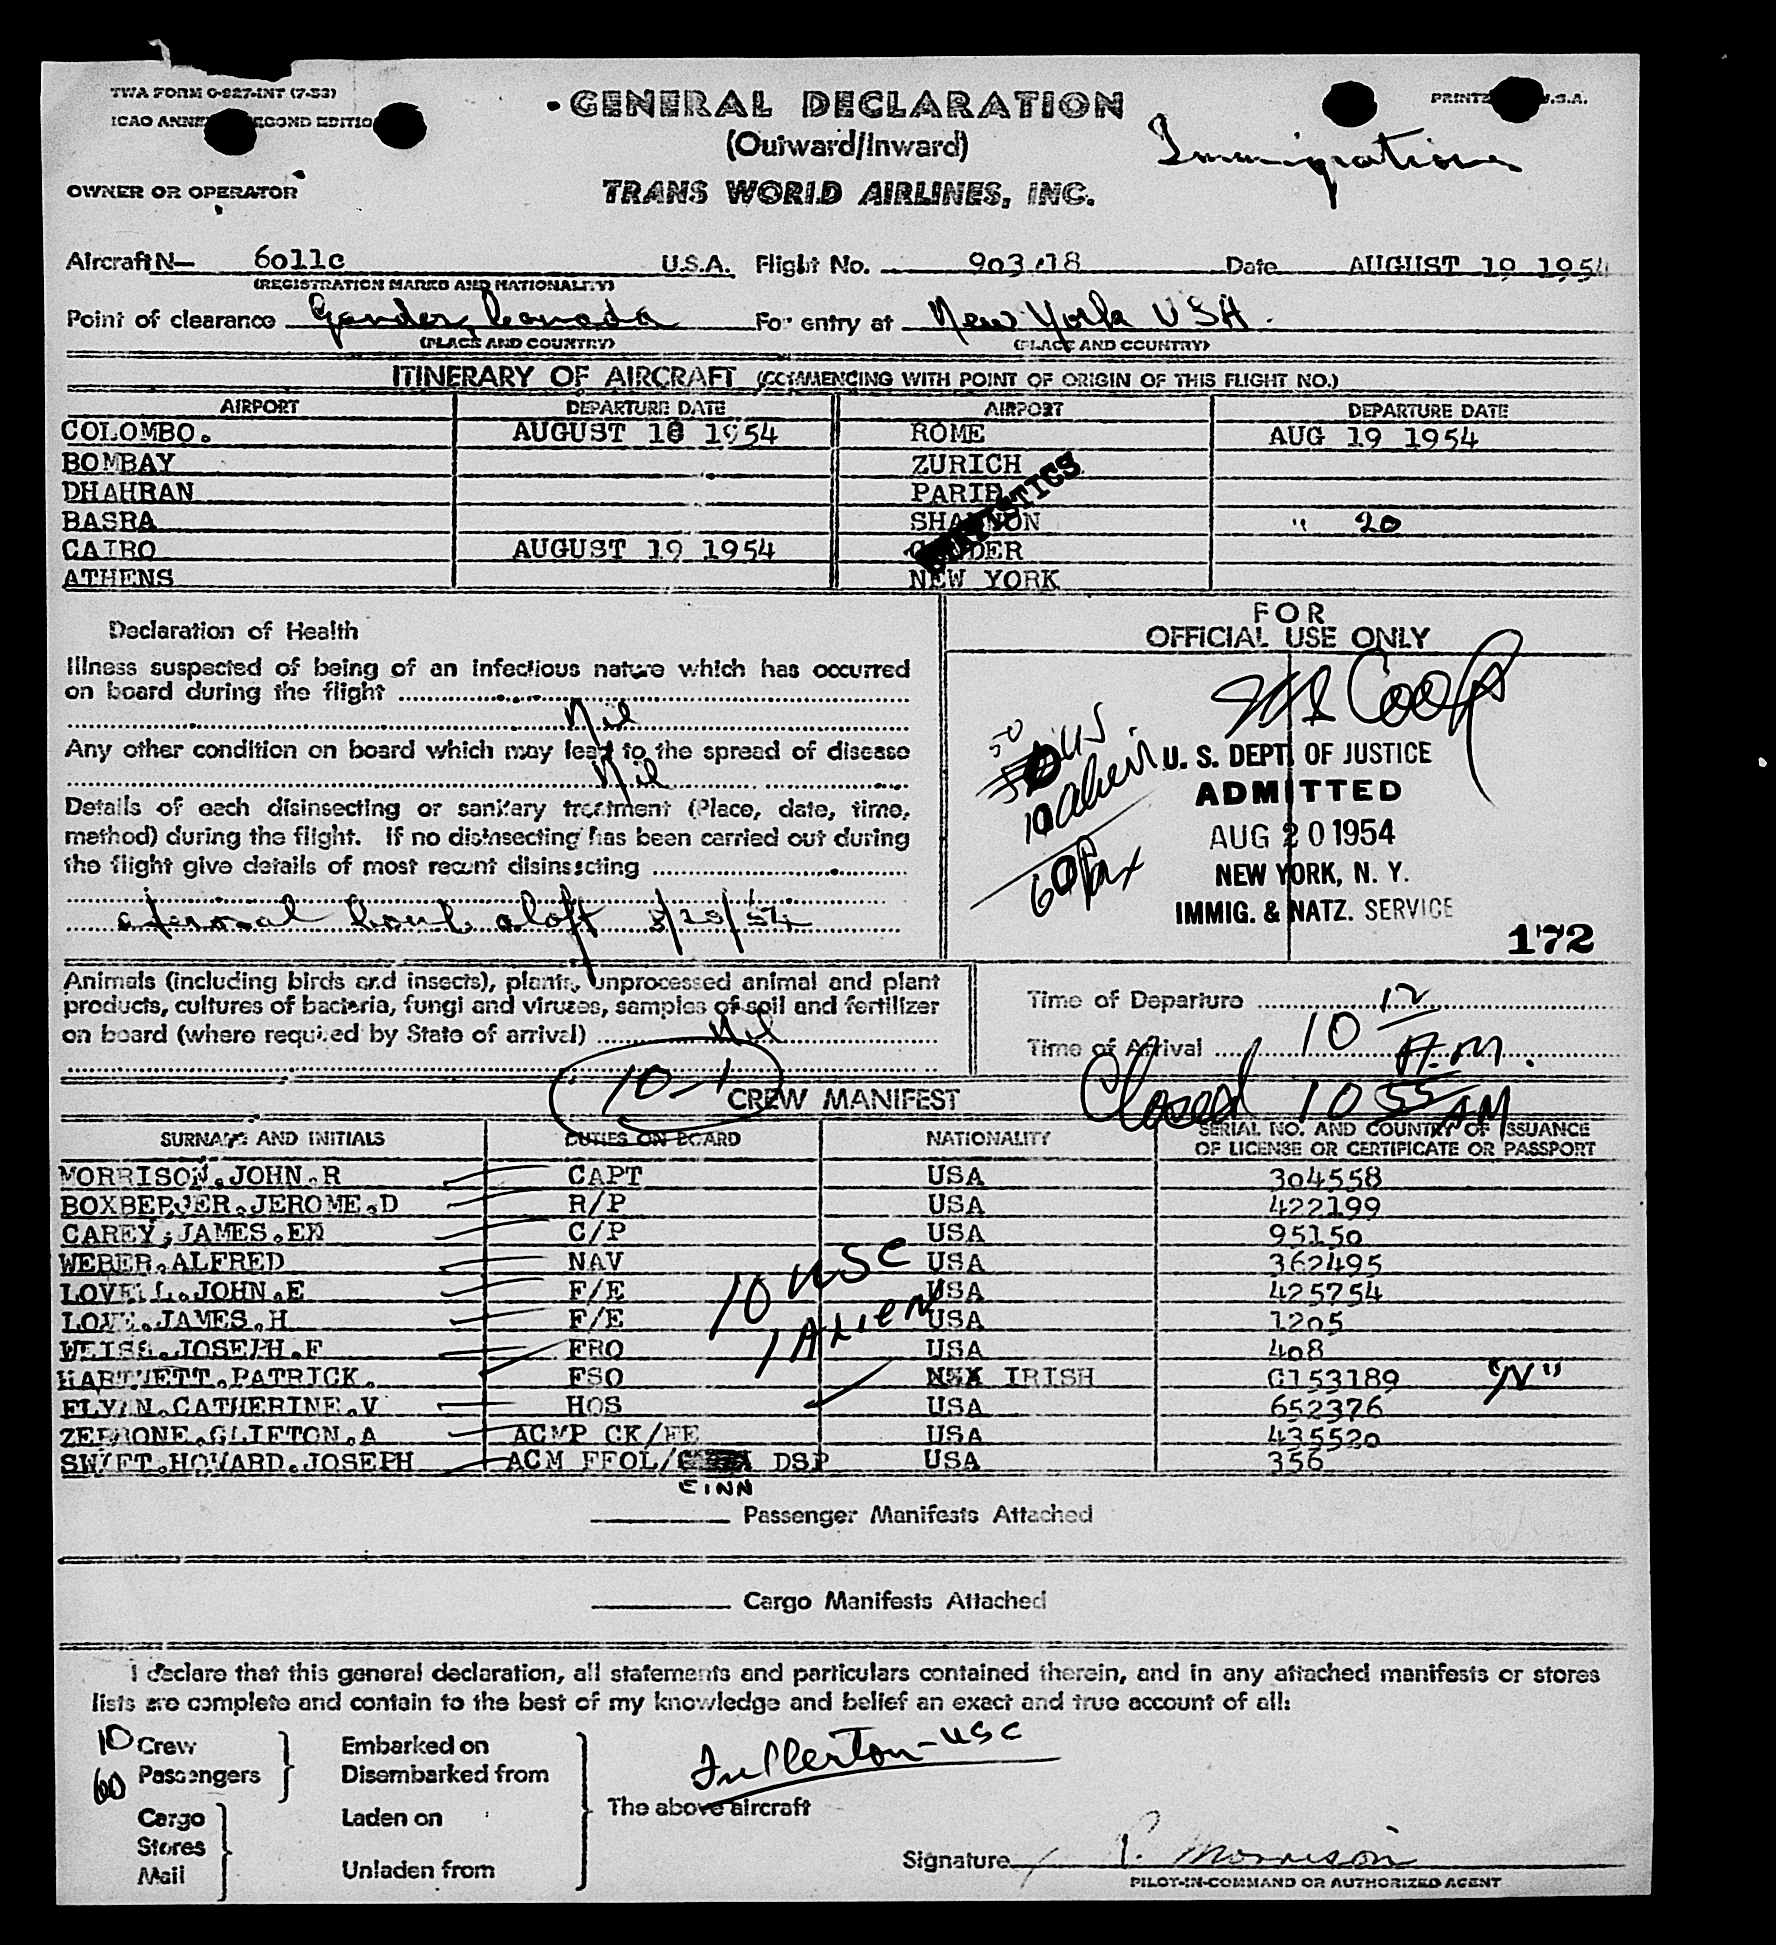 TWA FORM O-827-INT (7-53)
GENERAL DECLARATION
PRINTED U.S.A.
ICAO ANNEX SECOND EDITION
(Outward/Inward)
Immigration
OWNER OR OPERATOR
TRANS WORLD AIRLINES, INC.
Aircraft N— 6011c U.S.A. Flight No. 903/18 Date AUGUST 19 1954
(REGISTRATION MARKS AND NATIONALITY)
Point of clearance Gander, Canada For entry at New York USA.
(PLACE AND COUNTRY) (PLACE AND COUNTRY)
ITINERARY OF AIRCRAFT (COMMENCING WITH POINT OF ORIGIN OF THIS FLIGHT NO.)
AIRPORT DEPARTURE DATE AIRPORT DEPARTURE DATE
COLOMBO. AUGUST 18 1954 ROME AUG 19 1954
BOMBAY ZURICH
DHAHRAN PARIS
BASRA SHANNON " 20
CAIRO AUGUST 19 1954 GANDER
ATHENS NEW YORK
STATISTICS
Declaration of Health
FOR
OFFICIAL USE ONLY
Illness suspected of being of an infectious nature which has occurred
on board during the flight
Nil
Any other condition on board which may lead to the spread of disease
Nil
Details of each disinsecting or sanitary treatment (Place, date, time,
method) during the flight. If no disinsecting has been carried out during
the flight give details of most recent disinsecting
aerosol bomb aloft 8/20/54
50
10 alien
60 pax
U. S. DEPT. OF JUSTICE
ADMITTED
AUG 20 1954
NEW YORK, N. Y.
IMMIG. & NATZ. SERVICE
172
Animals (including birds and insects), plants, unprocessed animal and plant
products, cultures of bacteria, fungi and viruses, samples of soil and fertilizer
on board (where required by State of arrival)
Nil
Time of Departure
Time of Arrival 10 12 A.M.
10-1
CREW MANIFEST
Closed 10 55 AM
SURNAME AND INITIALS DUTIES ON BOARD NATIONALITY SERIAL NO. AND COUNTRY OF ISSUANCE
OF LICENSE OR CERTIFICATE OR PASSPORT
MORRISON.JOHN.R CAPT USA 304558
BOXBERGER.JEROME.D R/P USA 422199
CAREY,JAMES.ED C/P USA 95150
WEBER.ALFRED NAV USA 362495
LOVELL.JOHN.E F/E USA 425754
JAMES.H F/E USA 1205
WEISS.JOSEPH.F FRO USA 408
HARTNETT.PATRICK. FSO IRISH C153189 "N"
CATHERINE.V HOS USA 652376
ZERBONE.CLIFTON.A ACMP CK/FE USA 435520
SWIFT.HOWARD.JOSEPH ACM FFOL/ DSP USA 356
EINN
10 USC
1 ALIEN
Passenger Manifests Attached
Cargo Manifests Attached
I declare that this general declaration, all statements and particulars contained therein, and in any attached manifests or stores
lists are complete and contain to the best of my knowledge and belief an exact and true account of all:
10 Crew
60 Passengers
Embarked on
Disembarked from
Fullerton-USC
Cargo
Stores
Mail
Laden on
Unladen from
The above aircraft
Signature Morrison
PILOT-IN-COMMAND OR AUTHORIZED AGENT